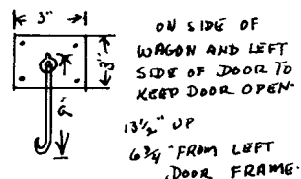 3"
3"
6"
ON SIDE OF
WAGON AND LEFT
SIDE OF DOOR TO
KEEP DOOR OPEN.
13½" UP
6¾" FROM LEFT
DOOR FRAME.